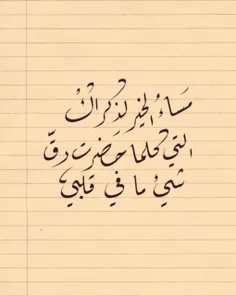 مَساءُ الخير لذكراكْ
التي كلما حَضرت رقّ
شيءُ ما في قلبيَ